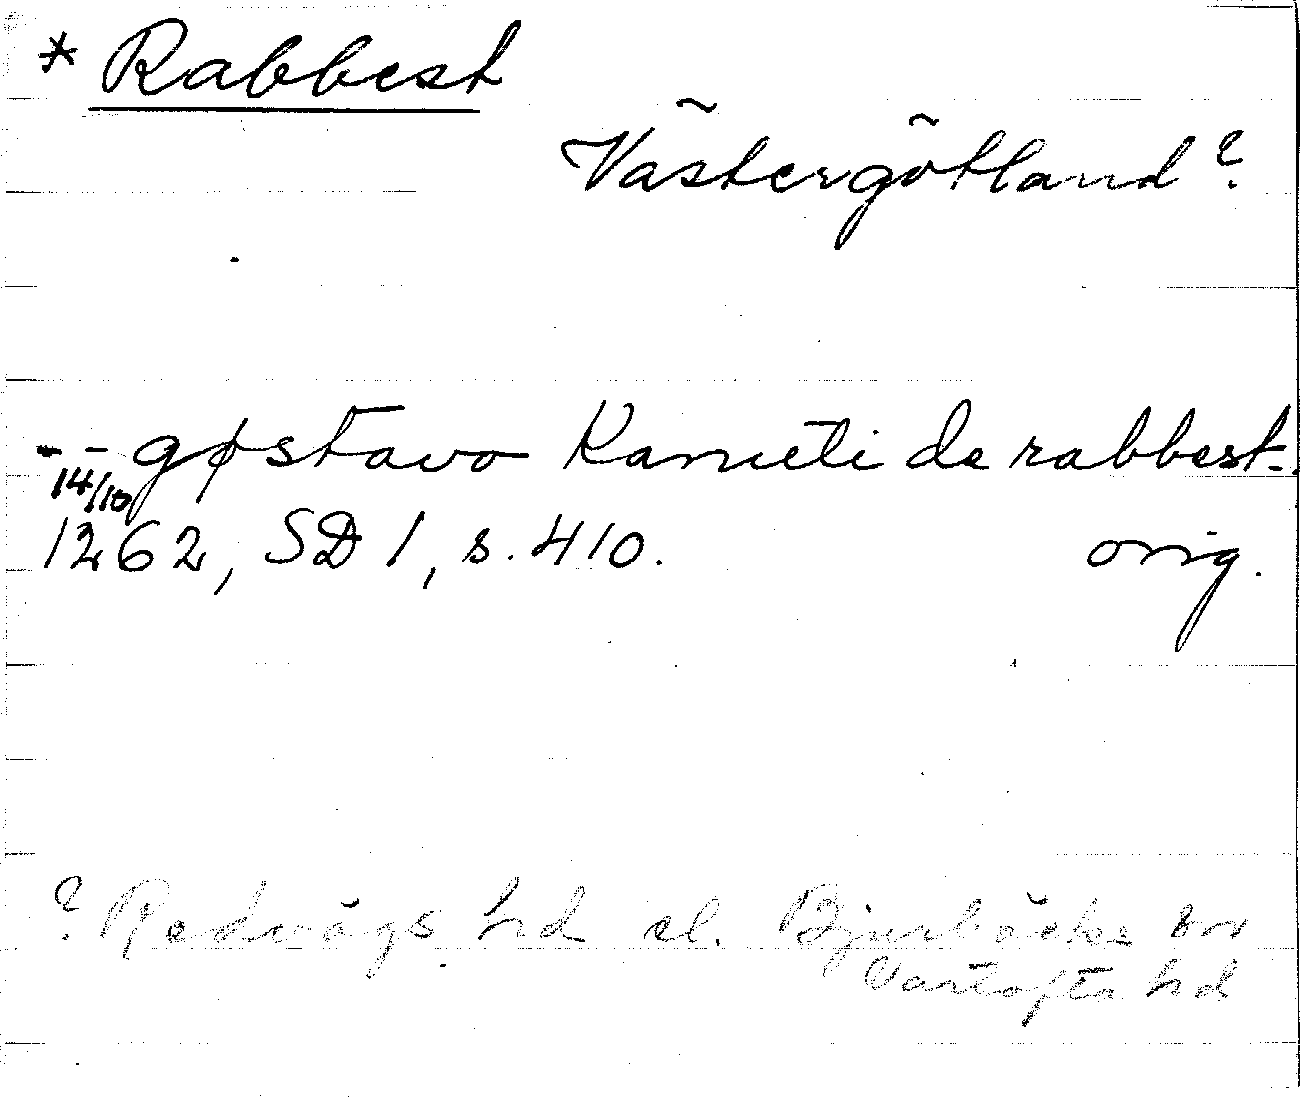 * Rabbest
Västergötland?
-- gøstavo Kanuti de rabbest -.
14/10
1262, SD 1, s. 410. orig.
? Redvägs hd el. Bjurbäcks
Vartofta hd